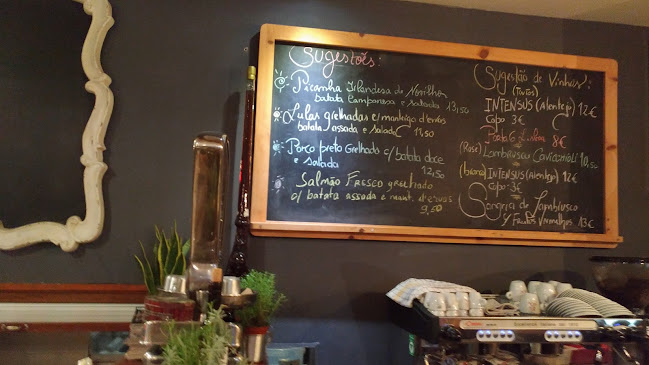 Sugestões:
Picanha Irlandesa de Novilho
batata Camponesa e salada 13,50
Lulas grelhadas c/ manteiga d'ervas
batata assada e salada 11,50
Porco preto Grelhado c/ batata doce
e salada
12,50
Salmão Fresco grelhado
c/ batata assada e mant. d'ervas
9,50
Sugestão de Vinhos:
(Tintos)
INTENSUS (Alentejo) 12€
Copo 3€
8€
(Rose) Lambrusco Cavicchioli 10,50
(branco) INTENSUS (Alentejo) 12€
Copo 3€
Sangria de Lambrusco
y Frutos Vermelhos 13€